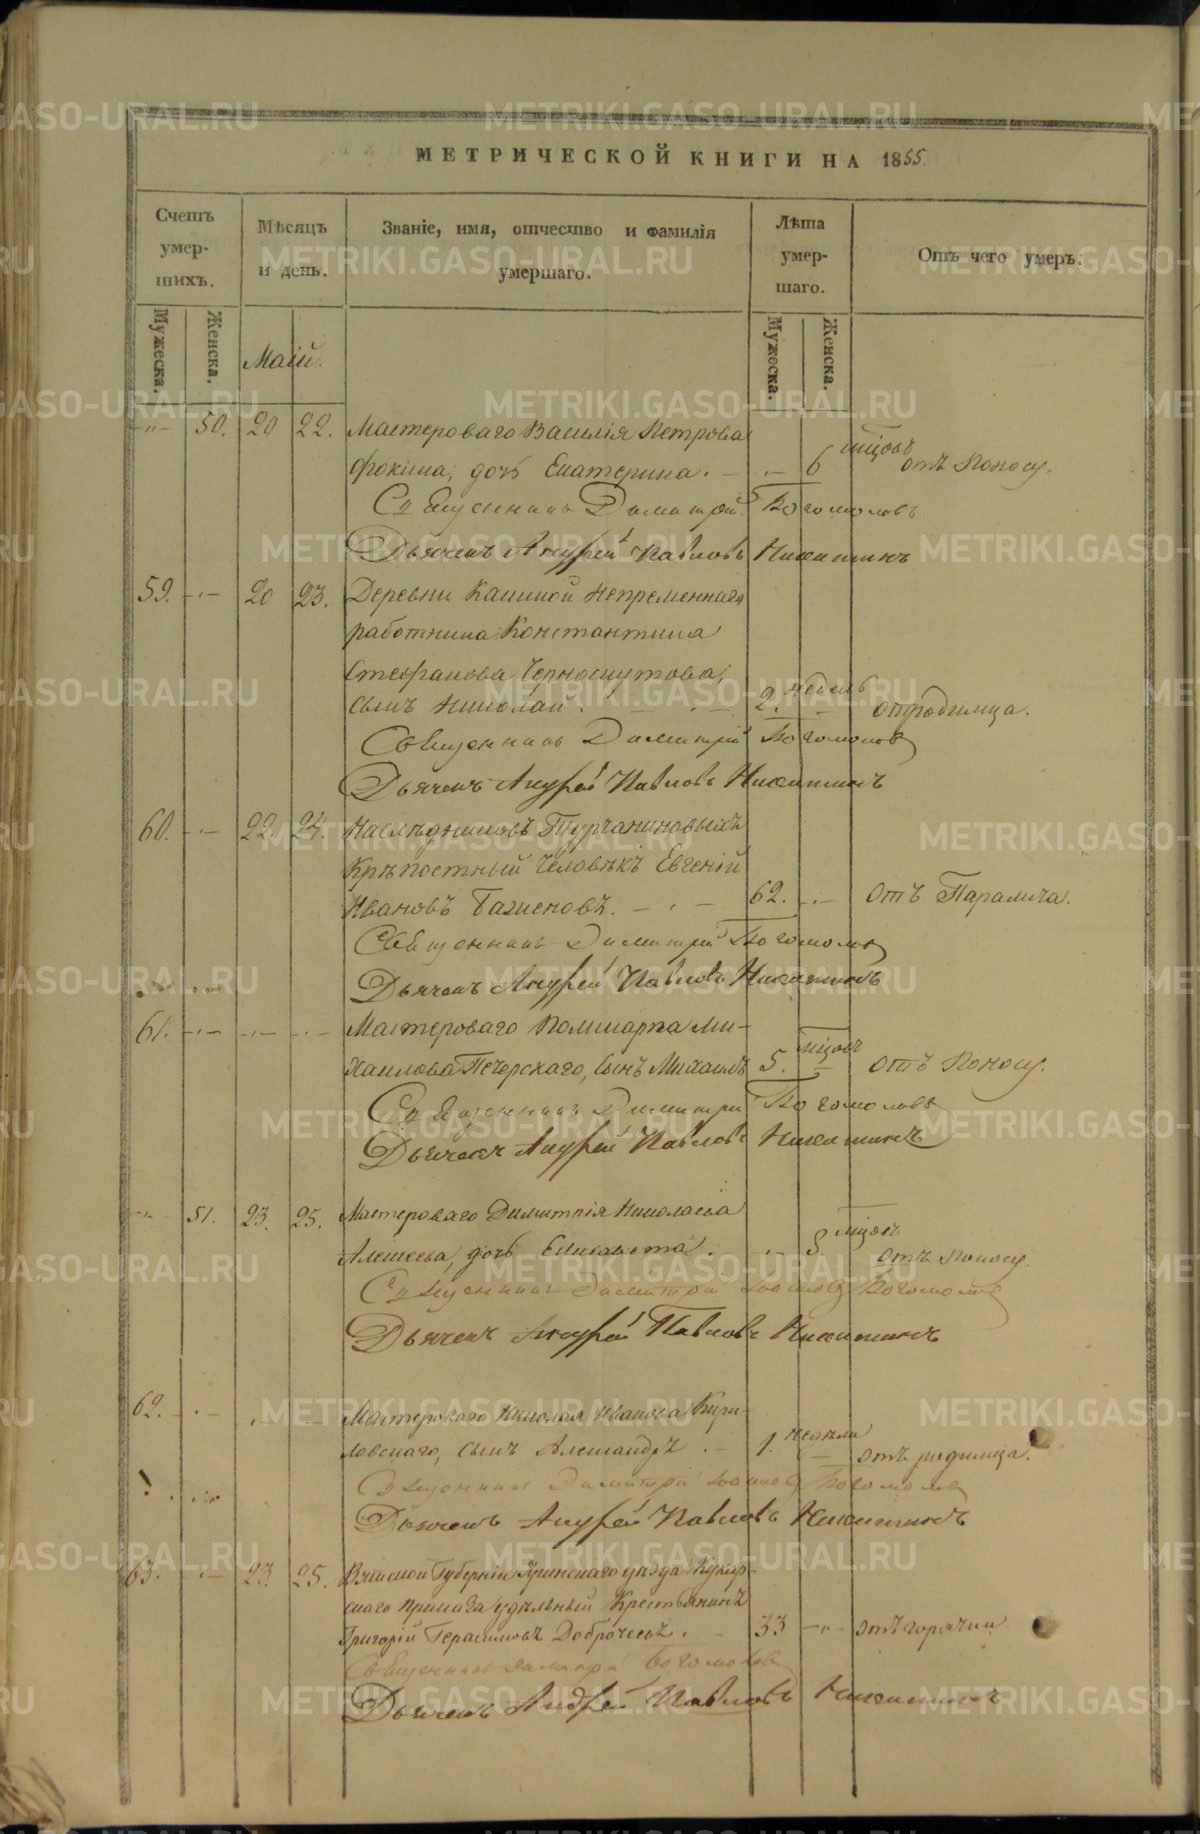 МЕТРИЧЕСКОЙ КНИГИ НА 1855.
Счетъ умер-шихъ. Мѣсяцъ и день. Званіе, имя, отчество и фамилія умершаго. Лѣта умер-шаго. Отъ чего умеръ.
Мужеска. Женска. Маій. Мужеска. Женска.
50. 20 22. Мастероваго Василія Петрова
Фокина, дочь Екатерина. 6 мцовъ отъ поносу.
Священникъ Димитрій Богомоловъ
Дьячекъ Андрей Павловъ Никитинъ
59. 20 23. Деревни Непременнаго
работника Константина
Стефанова Черноскутова,
сынъ Николай. 2. недель отродимца.
Священникъ Димитрій Богомоловъ
Дьячекъ Андрей Павловъ Никитинъ
60. 22. 24. Наслѣдниковъ Турчаниновыхъ
Крѣпостный человѣкъ Евгеній
Ивановъ 62. Отъ Паралича.
Священникъ Димитрій Богомоловъ
Дьячекъ Андрей Павловъ Никитинъ
61. Мастероваго Поликарпа Ми-
хаилова Печерскаго, сынъ Михаилъ 5. мцовъ отъ поносу.
Священникъ Димитрій Богомоловъ
Дьячекъ Андрей Павловъ Никитинъ
51. 23. 25. Мастероваго Димитрія Николаева
дочь Елисавета. 8. мцовъ отъ поносу.
Священникъ Димитрій Богомоловъ
Дьячекъ Андрей Павловъ Никитинъ
62. Мастероваго Николая Иванова Кури-
ловскаго, сынъ Александръ 1. недѣли отъ родимца.
Священникъ Димитрій Богомоловъ
Дьячекъ Андрей Павловъ Никитинъ
63. 23. 25. Вятской Губерніи Яранскаго уѣзда Кукар-
скаго приказа удѣльный крестьянинъ
Григорій Герасимовъ 33 отъ горячки.
Священникъ Димитрій Богомоловъ
Дьячекъ Андрей Павловъ Никитинъ
METRIKI.GASO-URAL.RU